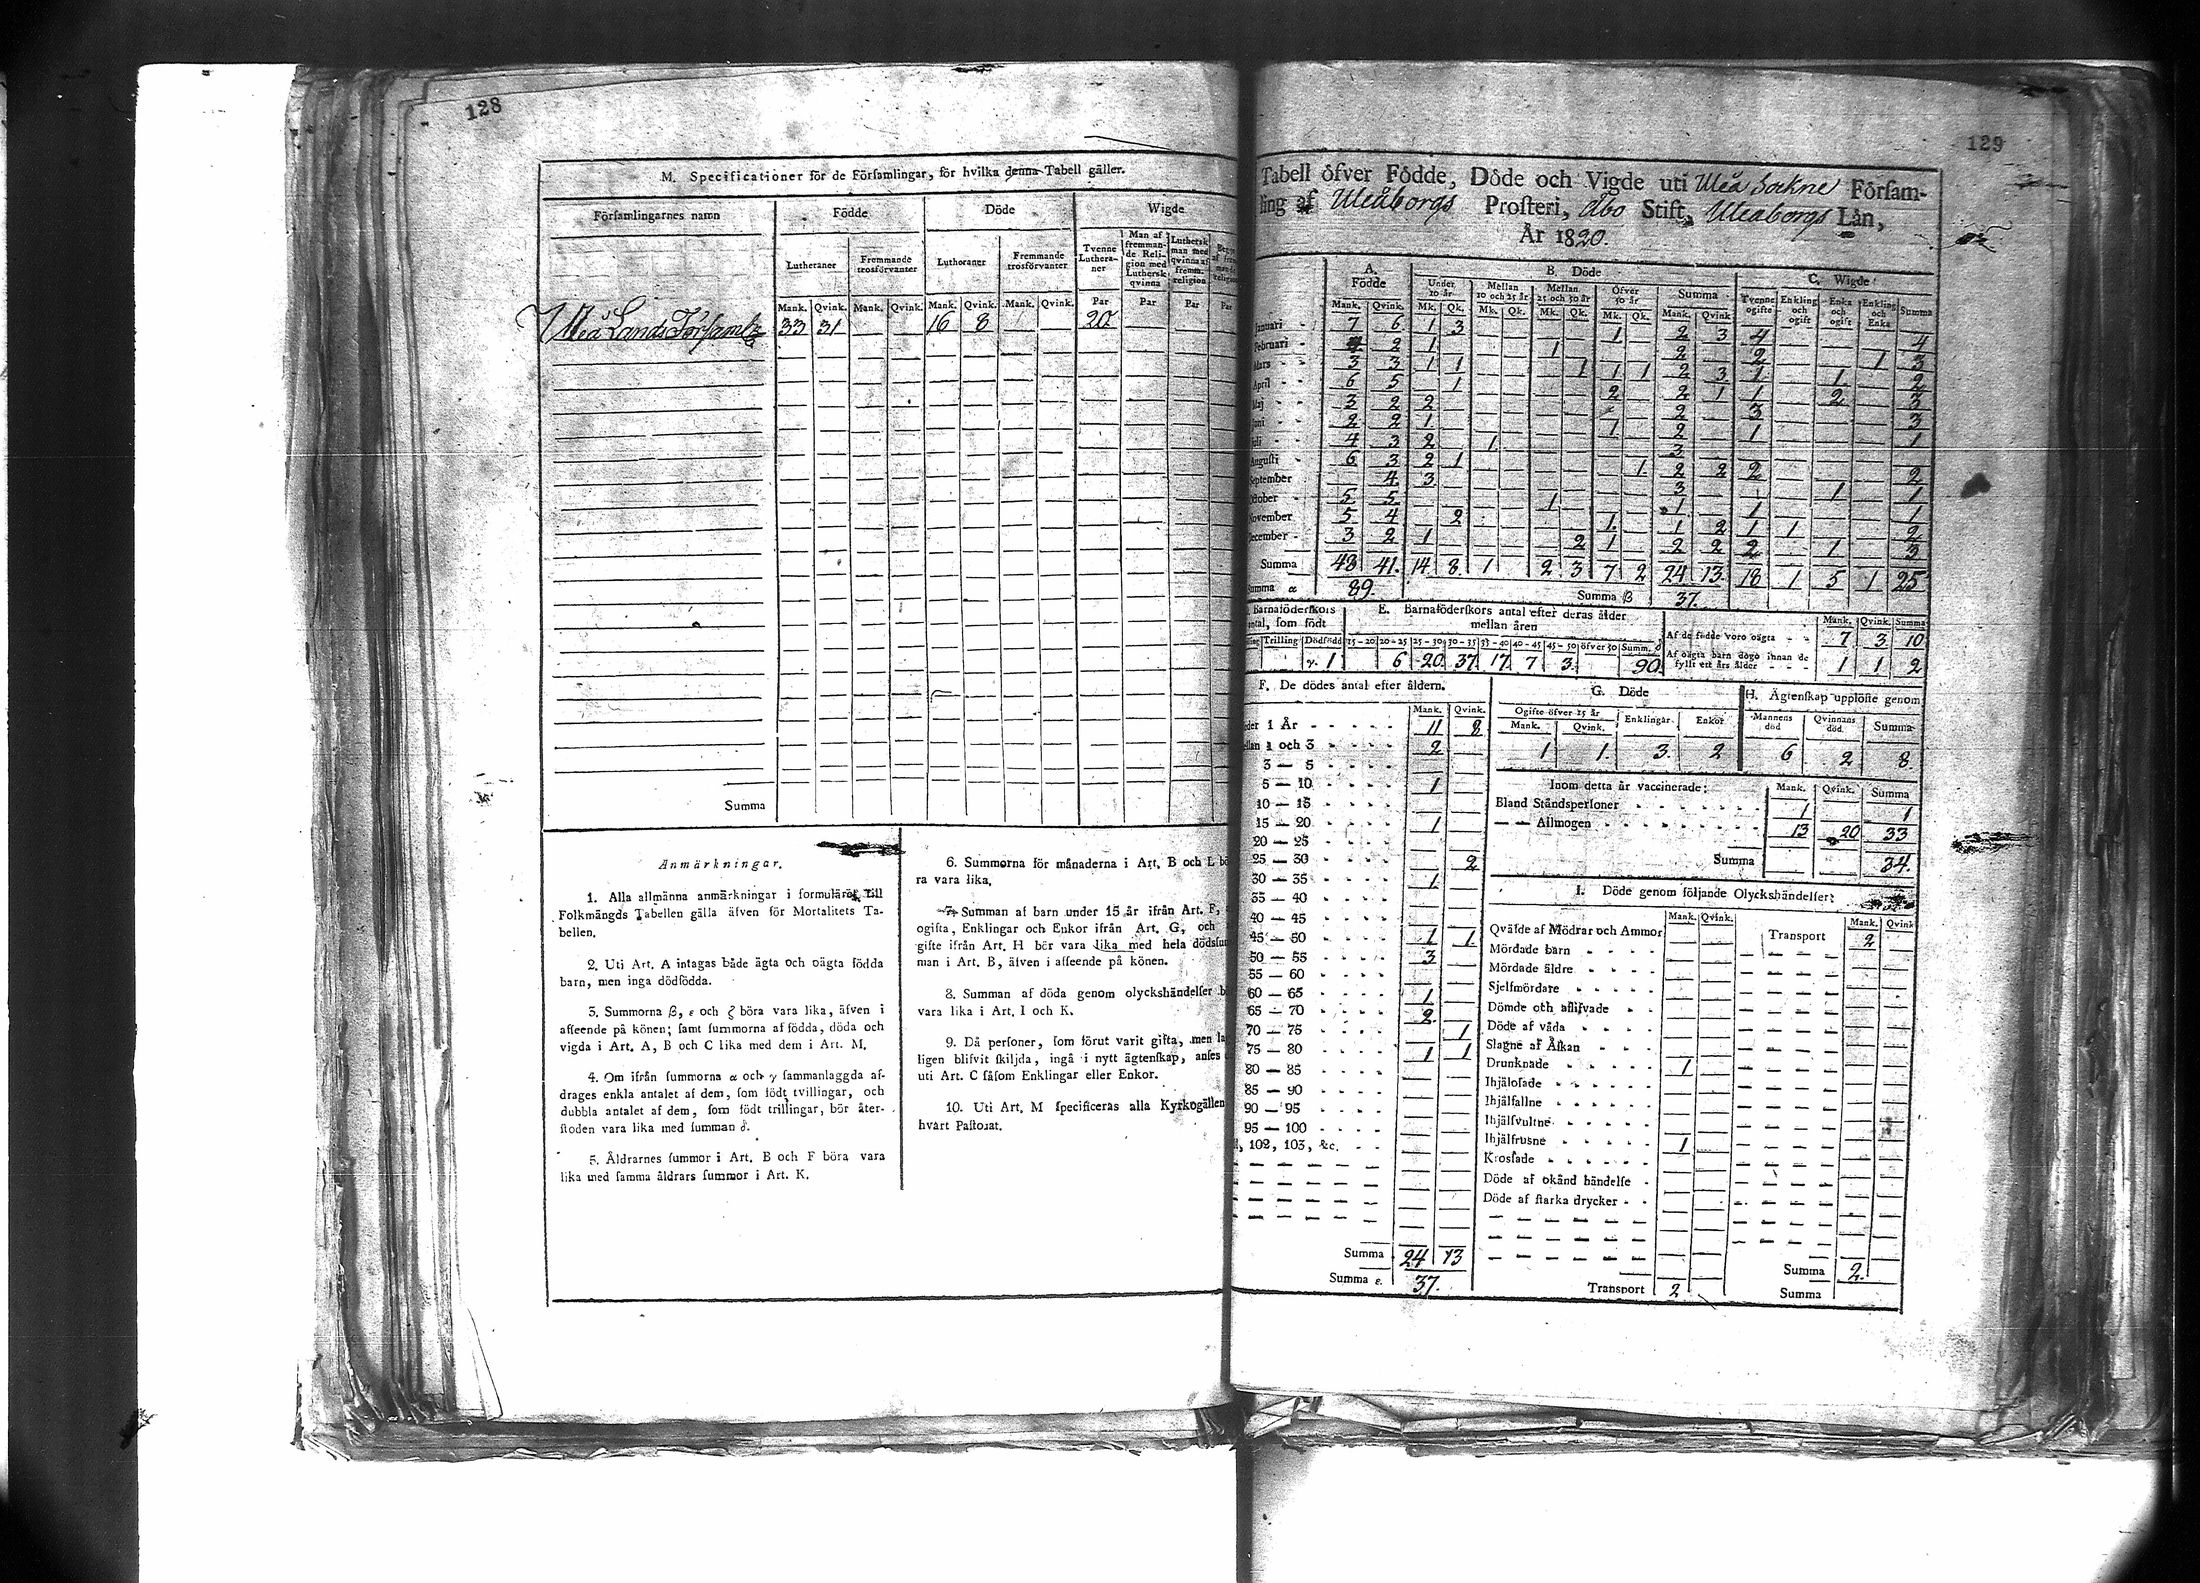 128
M. Specificationer för de Församlingar, för hvilka denna Tabell gäller.
Församlingarnes namn
Födde
Döde
Wigde
Lutheraner
Fremmande trosförvanter
Lutheraner
Fremmande trosförvanter
Tvenne Luthera-ner
Man af fremman-de Reli-gion med Luthersk qvinna
Luthersk man med qvinna af fremm. religion
Mank. Qvink. Mank. Qvink. Mank. Qvink. Mank. Qvink. Par Par Par Par
Uleå Lands Församl. 33 31 16 8 20
Summa
Anmärkningar.
1. Alla allmänna anmärkningar i formuläret till
Folkmängds Tabellen gälla äfven för Mortalitets Ta-
bellen.
2. Uti Art. A intagas både ägta och oägta födda
barn, men inga dödfödda.
3. Summorna β, ε och ζ böra vara lika, äfven i
afseende på könen; samt summorna af födda, döda och
vigda i Art. A, B och C lika med dem i Art. M.
4. Om ifrån summorna α och γ sammanlaggda af-
drages enkla antalet af dem, som födt tvillingar, och
dubbla antalet af dem, som födt trillingar, bör åter-
stoden vara lika med summan δ.
5. Åldrarnes summor i Art. B och F böra vara
lika med samma åldrars summor i Art. K.
6. Summorna för månaderna i Art. B och L bö
ra vara lika.
7. Summan af barn under 15 år ifrån Art. F,
ogifta, Enklingar och Enkor ifrån Art. G, och
gifte ifrån Art. H bör vara lika med hela dödssum
man i Art. B, äfven i afseende på könen.
8. Summan af döda genom olyckshändelser b
vara lika i Art. I och K.
9. Då personer, som förut varit gifta, men la
ligen blifvit skiljda, ingå i nytt ägtenskap, anses
uti Art. C såsom Enklingar eller Enkor.
10. Uti Art. M specificeras alla Kyrkogällen
hvart Pastorat.
129
Tabell öfver Födde, Döde och Vigde uti Uleå Sockne Försam-
ling af Uleåborgs Prosteri, Åbo Stift, Uleaborgs Län,
År 1820.
A. Födde
B. Döde
C. Wigde
Under 10 år
Mellan 10 och 25 år
Mellan 25 och 50 år
Öfver 50 år
Summa
Tvenne ogifte
Enkling och ogift
Enka och ogift
Enkling och Enka
Summa
Mank. Qvink. Mk. Qk. Mk. Qk. Mk. Qk. Mk. Qk. Mank. Qvink
Januari 7 6 1 3 1 2 3 4 4
Februari 4 2 1 1 2 2 1 3
Mars 3 3 1 1 1 1 1 2 3 1 1 2
April 6 5 1 2 2 1 1 2 3
Maj 3 2 2 2 3 3
Juni 2 2 1 1 2 1 1
Juli 4 3 2 1 3
Augusti 6 3 2 1 1 2 2 2 2
September 4 3 3 1 1
October 5 5 1 1 1 1
November 5 4 2 1 1 2 1 1 2
December 3 2 1 2 1 2 2 2 1 3
Summa 48 41 14 8 1 2 3 7 2 24 13 18 1 5 1 25
Summa α 89. Summa β 37.
Barnaföderskors
antal, som födt
Trilling Dödfödd
γ. 1
E. Barnaföderskors antal efter deras ålder
mellan åren
15-20 20-25 25-30 30-35 35-40 40-45 45-50 öfver 50 Summ. δ
6 20 37 17 7 3 90
Mank. Qvink. Summa
Af de födde voro oägta 7 3 10
Af oägta barn dogo innan de
fyllt ett års ålder 1 1 2
F. De dödes antal efter åldern.
Mank. Qvink.
1 År 11 8
1 och 3 2
3 — 5
5 — 10 1
10 — 15
15 — 20 1
20 — 25
25 — 30 2
30 — 35 1
35 — 40
40 — 45
45 — 50 1 1
50 — 55 3
55 — 60
60 — 65 1
65 — 70 2
70 — 75 1
75 — 80 1 1
80 — 85
85 — 90
90 — 95
95 — 100
102, 103, &c.
Summa 24 13
Summa ε. 37.
G. Döde
Ogifte öfver 15 år
Enklingar
Enkor
Mank. Qvink.
1 1 3 2
H. Ägtenskap upplöste genom
Mannens död
Qvinnans död
Summa
6 2 8
Inom detta år vaccinerade: Mank. Qvink. Summa
Bland Ståndspersoner 1 1
— — Allmogen 13 20 33
Summa 34.
I. Döde genom följande Olyckshändelser:
Mank. Qvink. Mank. Qvink
Qväfde af Mödrar och Ammor
Transport 2
Mördade barn
Mördade äldre
Sjelfmördare
Dömde och aflifvade
Döde af våda
Slagne af Åskan
Drunknade 1
Ihjälosade
Ihjälfallne
Ihjälsvultne
Ihjälfrusne 1
Krossade
Döde af okänd händelse
Döde af starka drycker
Transport 2
Summa 2
Summa